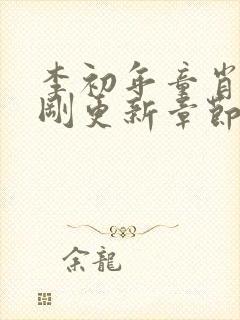 李初年童肖
剛更新章節
余龍